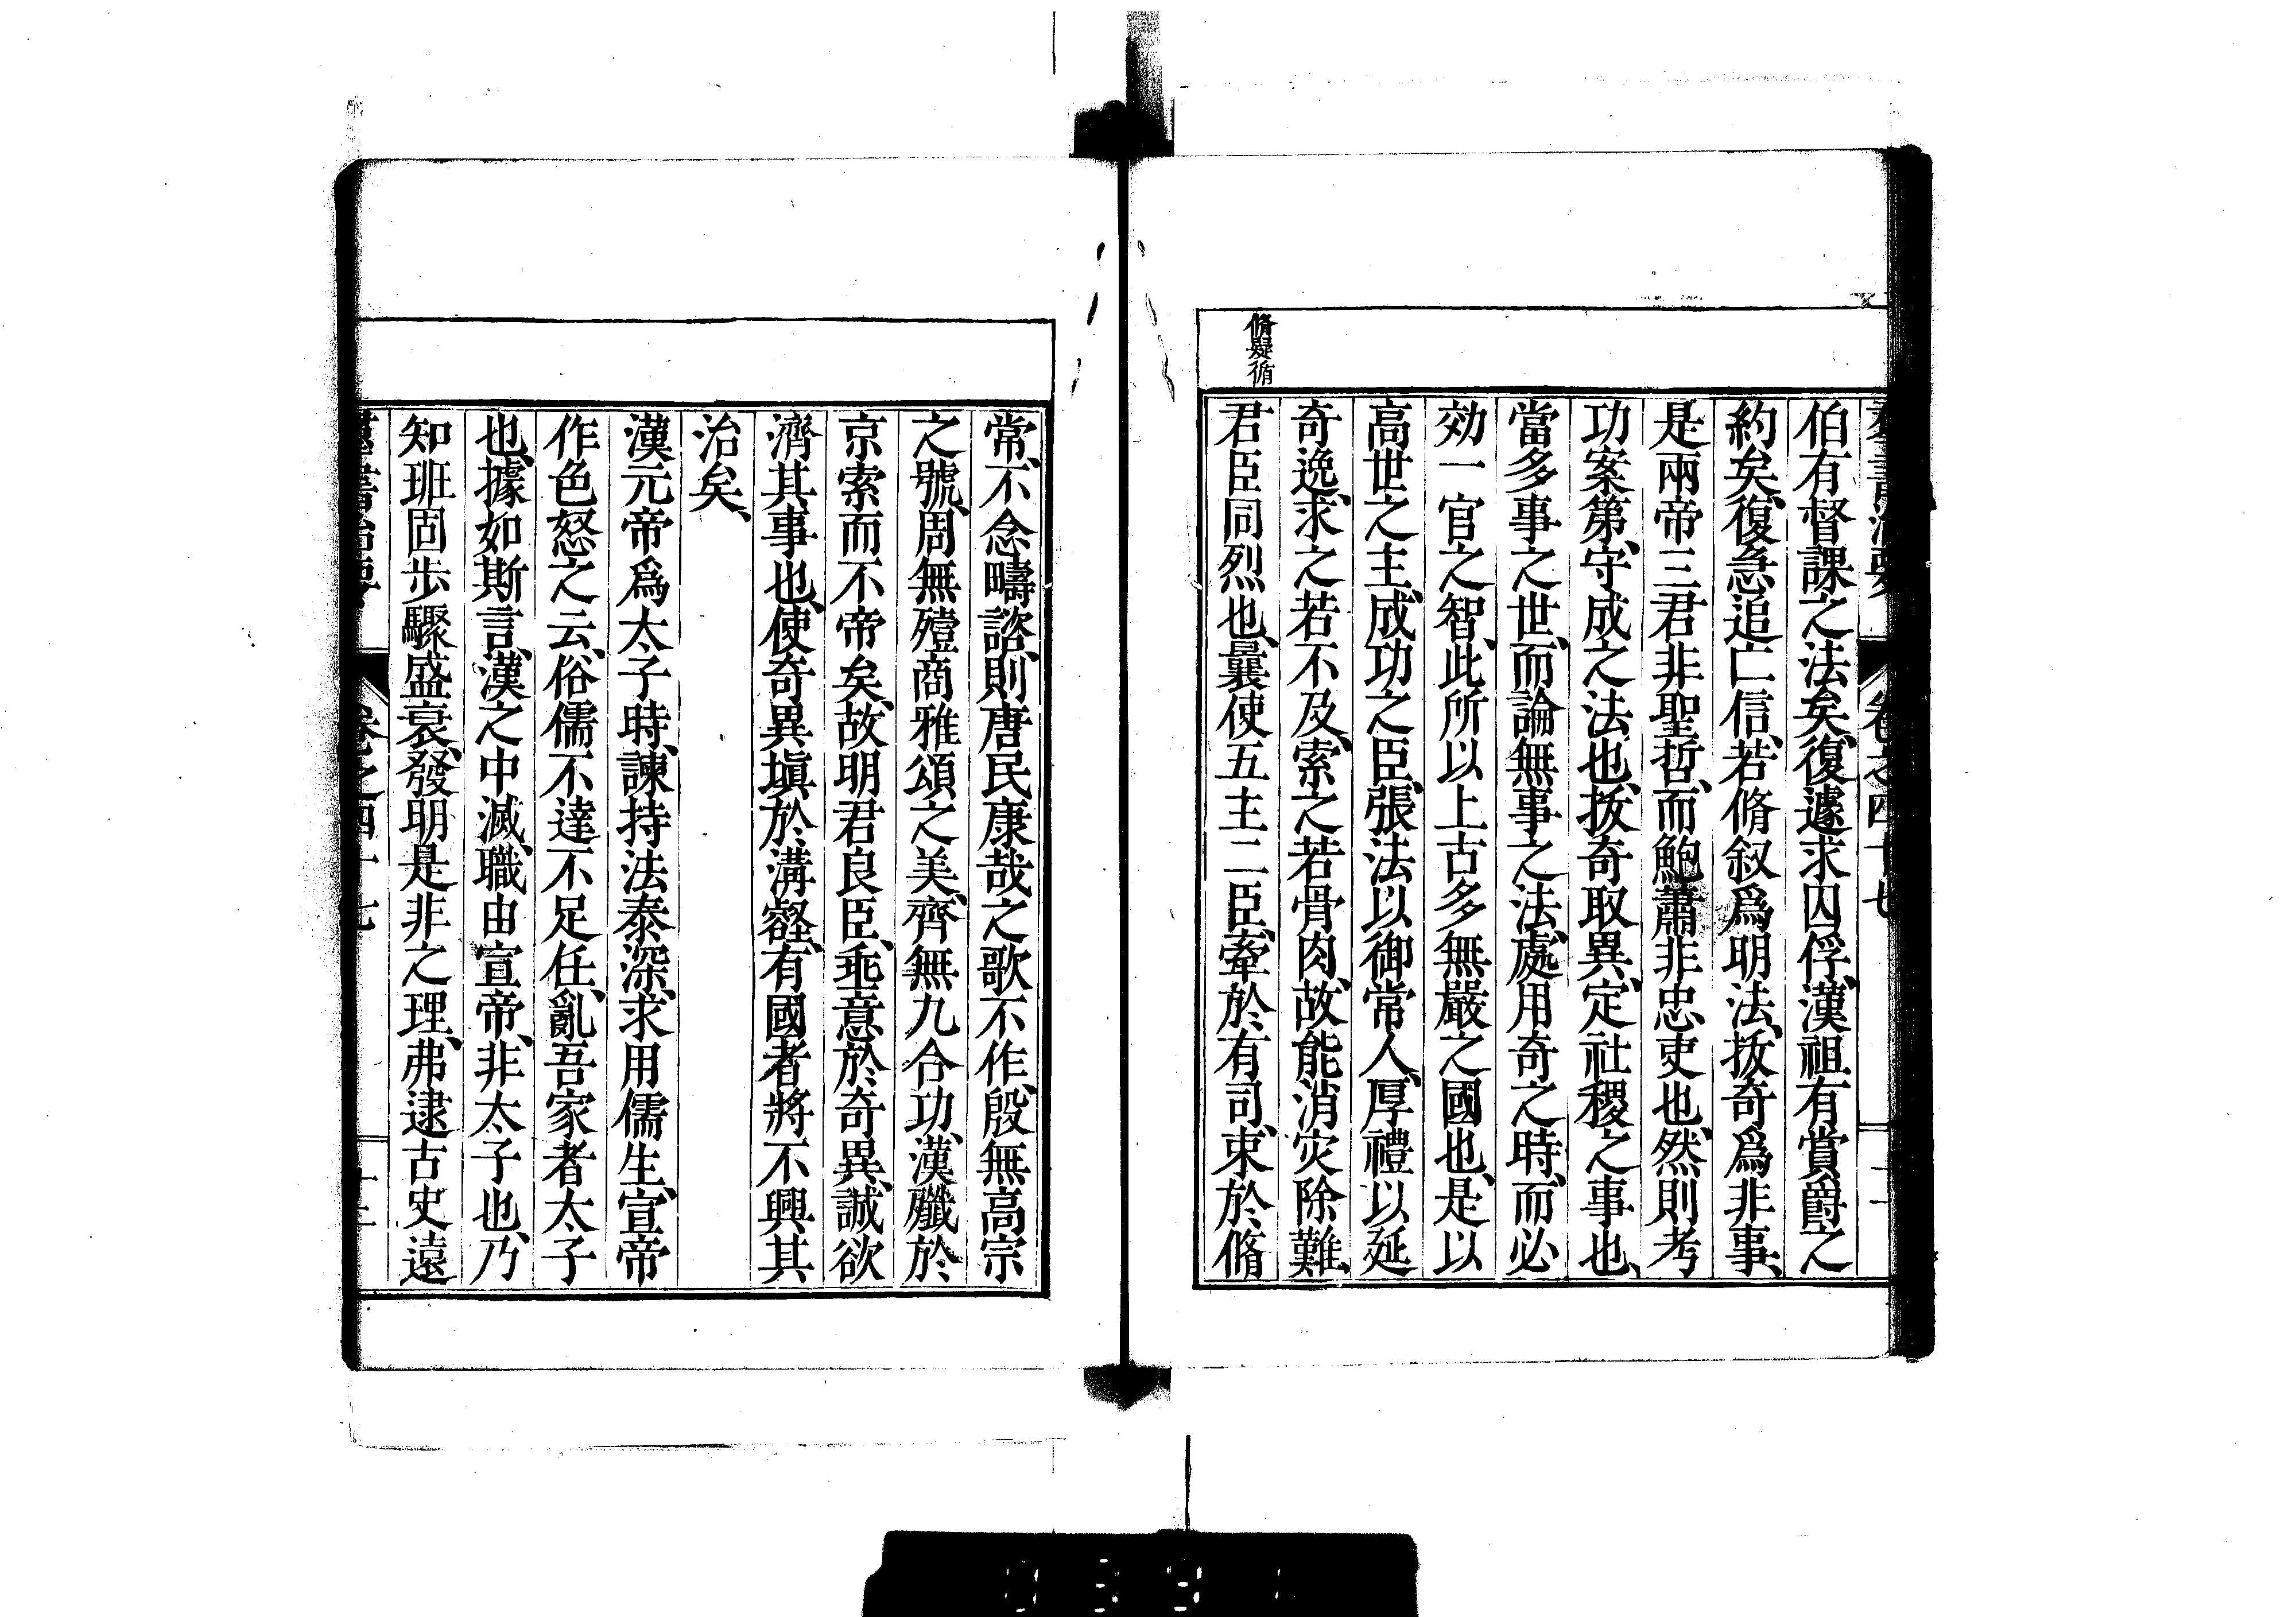 羣書治要 卷之四十七
伯有督課之法矣、復遽求囚俘、漢祖有賞爵之
約矣、復急追亡信、若脩叙爲明法、拔奇爲非事、
是兩帝三君非聖哲、而鮑蕭非忠吏也、然則考
功案第、守成之法也、拔奇取異、定社稷之事也、
當多事之世、而論無事之法、處用奇之時、而必
効一官之智、此所以上古多無嚴之國也、是以
高世之主、成功之臣、張法以御常人、厚禮以延
奇逸、求之若不及、索之若骨肉、故能消灾除難、
君臣同烈也、曩使五主二臣、牽於有司、束於脩
脩疑循
常、不念疇諮、則唐民康哉之歌不作、殷無高宗
之號、周無殪商雅頌之美、齊無九合功、漢殲於
京索而不帝矣、故明君良臣、垂意於奇異、誠欲
濟其事也、使奇異塡於溝壑、有國者將不興其
治矣、
漢元帝爲太子時、諫持法泰深、求用儒生、宣帝
作色怒之云、俗儒不達不足任、亂吾家者太子
也、據如斯言、漢之中滅、職由宣帝、非太子也、乃
知班固步驟盛衰、發明是非之理、弗逮古史遠
羣書治要 卷之四十七 十三